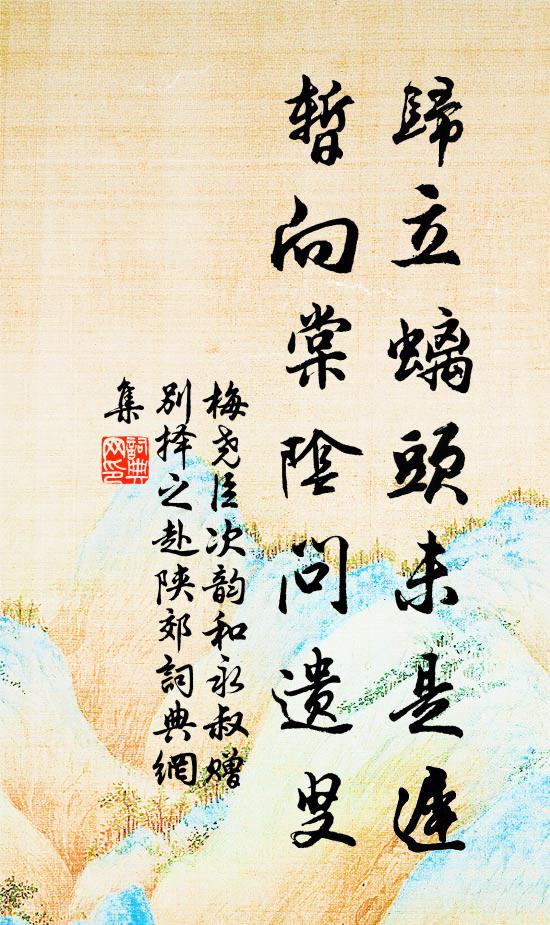 歸立螭頭未是遲
暫向棠陰問遺叟
梅尧臣次韵和永叔赠
别择之赴陕郊詞典網
集
詞典网印